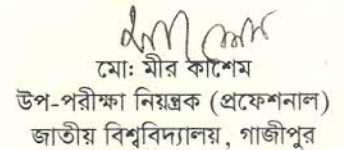 মোঃ মীর কাশেম
উপ-পরীক্ষা নিয়ন্ত্রক (প্রফেশনাল)
জাতীয় বিশ্ববিদ্যালয়, গাজীপুর